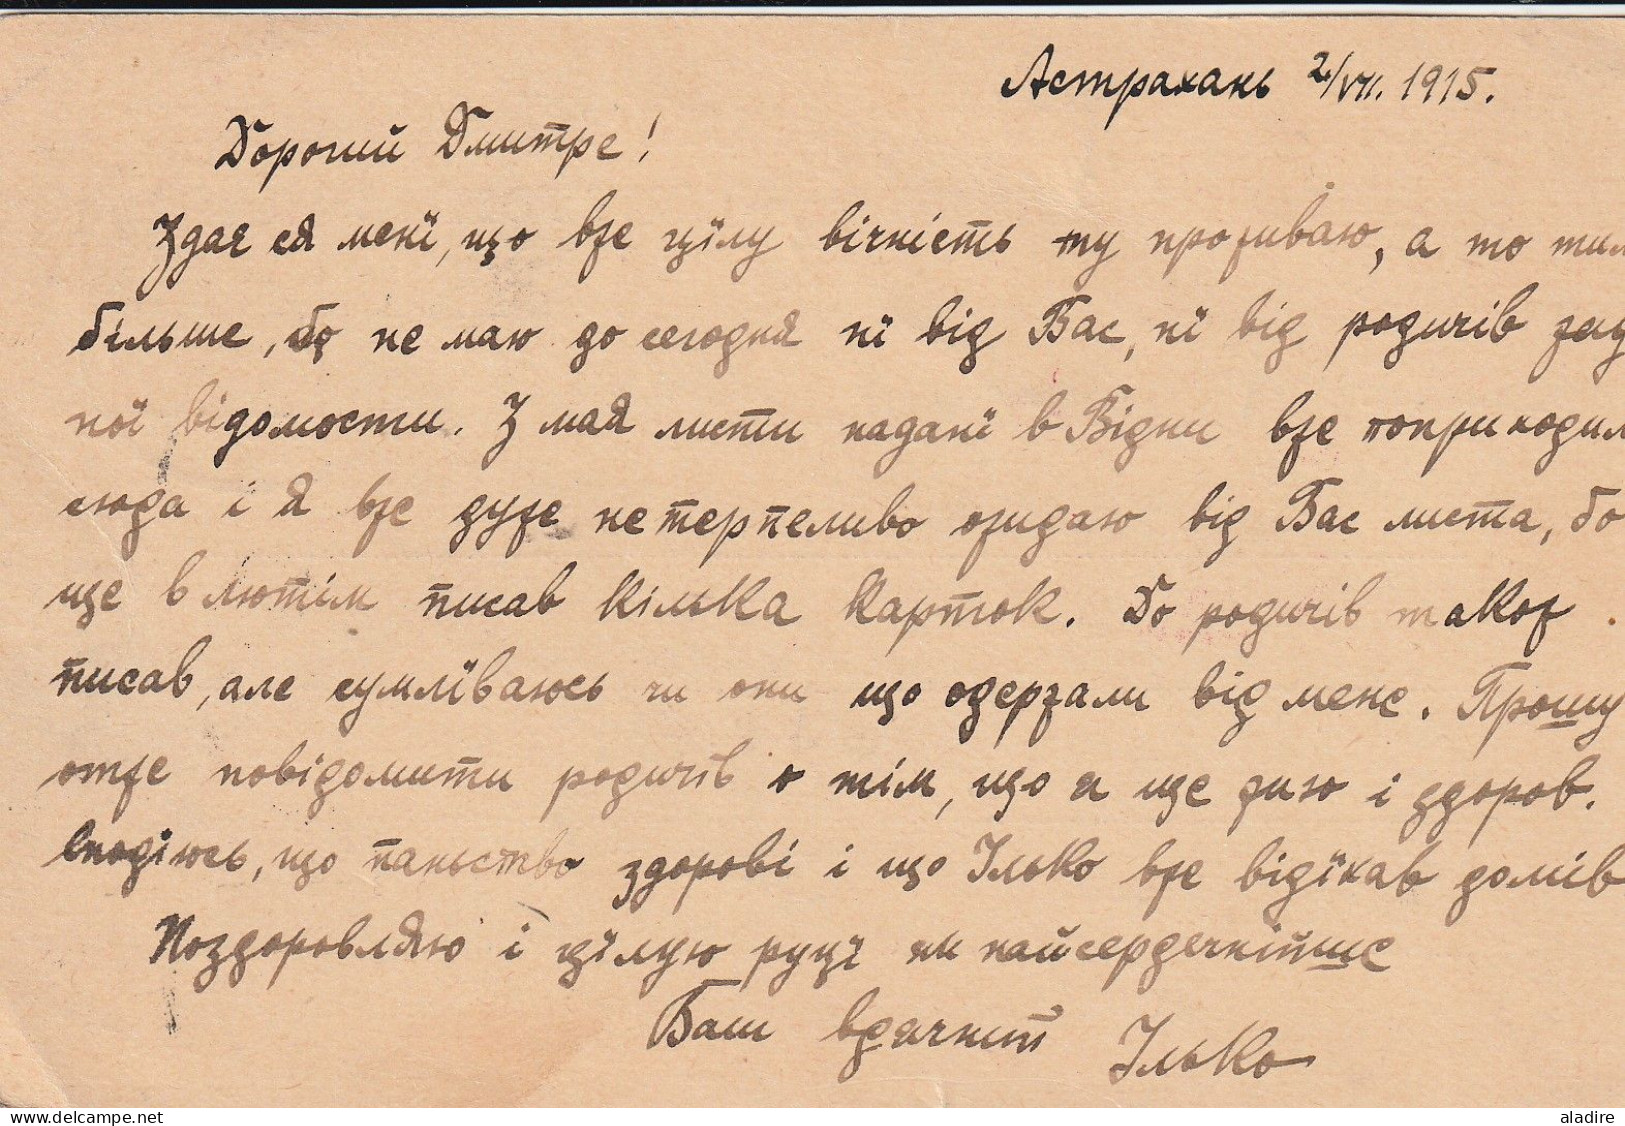 Астрахань 2/VII. 1915.
Дорогий Дмитре!
Здає ся менї, що вже цїлу вічність ту проживаю, а то тим
більше, бо не маю до сегодня нї від Вас, нї від родичів жад
ної відомости. З мая листи надані в Відни вже поприходил
сюда і я вже дуже нетерпеливо ожидаю від Вас листа, бо
ще в лютім писав кілька карток. До родичів також
писав, але сумлїваюсь чи они що одержали від мене. Прошу
отже повідомити родичів о тім, що я ще жию і здоров.
Сподїюсь, що паньство здорові і що Ілько вже відїхав домів
Поздоровляю і цїлую руцї як найсердечнійше
Ваш вдячний Ілько
aladire
www.delcampe.net